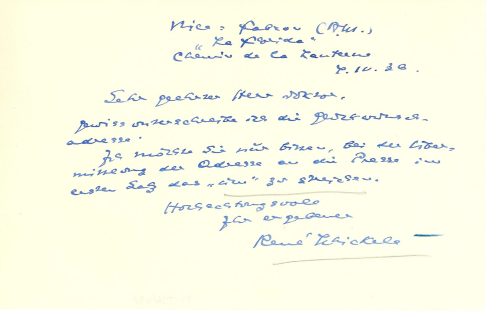 Nice-Fabron (A.M.)
"La Florida"
Chemin de la Lanterne
7.IV.38
Sehr geehrter Herr Doktor,
gewiss unterschreibe ich die Glückwunsch-
adresse.
Ich möchte Sie nur bitten, bei der Über-
mittlung der Adresse an die Presse im
ersten Satz das „
" zu streichen.
Hochachtungsvoll
Ihr ergebener
René Schickele